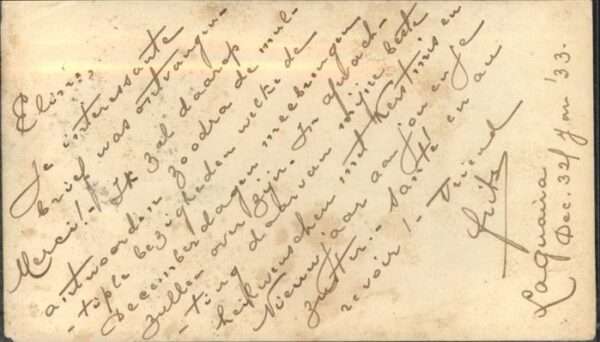 Elinor,
Je interessante
brief was ontvangen.
Merci! - Ik zal daarop
antwoorden zoodra de mul-
-tiple bezigheden welke de
Decemberdagen meebrengen
zullen over zijn. In afwach-
-ting daarvan mijne beste
heilwenschen met Kerstmis en
Nieuwjaar aan jou en je
zuster. - Santé! en au
revoir! - Vriend
Fritz
LaGuaira
Dec. 32/Jan '33.